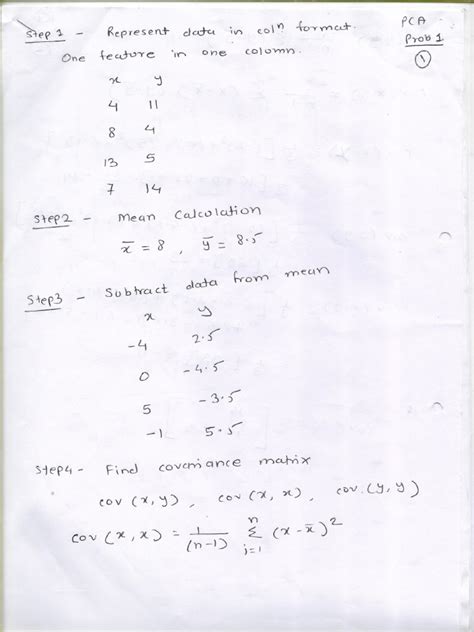 Step 1 - Represent data in colⁿ format.
One feature in one column.
PCA
Prob 1
①
x y
4 11
8 4
13 5
7 14
Step2 - Mean Calculation
x̄ = 8 , ȳ = 8.5
Step3 - Subtract data from mean
x y
-4 2.5
0 -4.5
5 -3.5
-1 5.5
Step4 - Find covariance matrix
cov (x, y) , cov (x, x) , cov (y, y)
cov (x, x) = 1/(n-1) n Σ i=1 (x - x̄)²